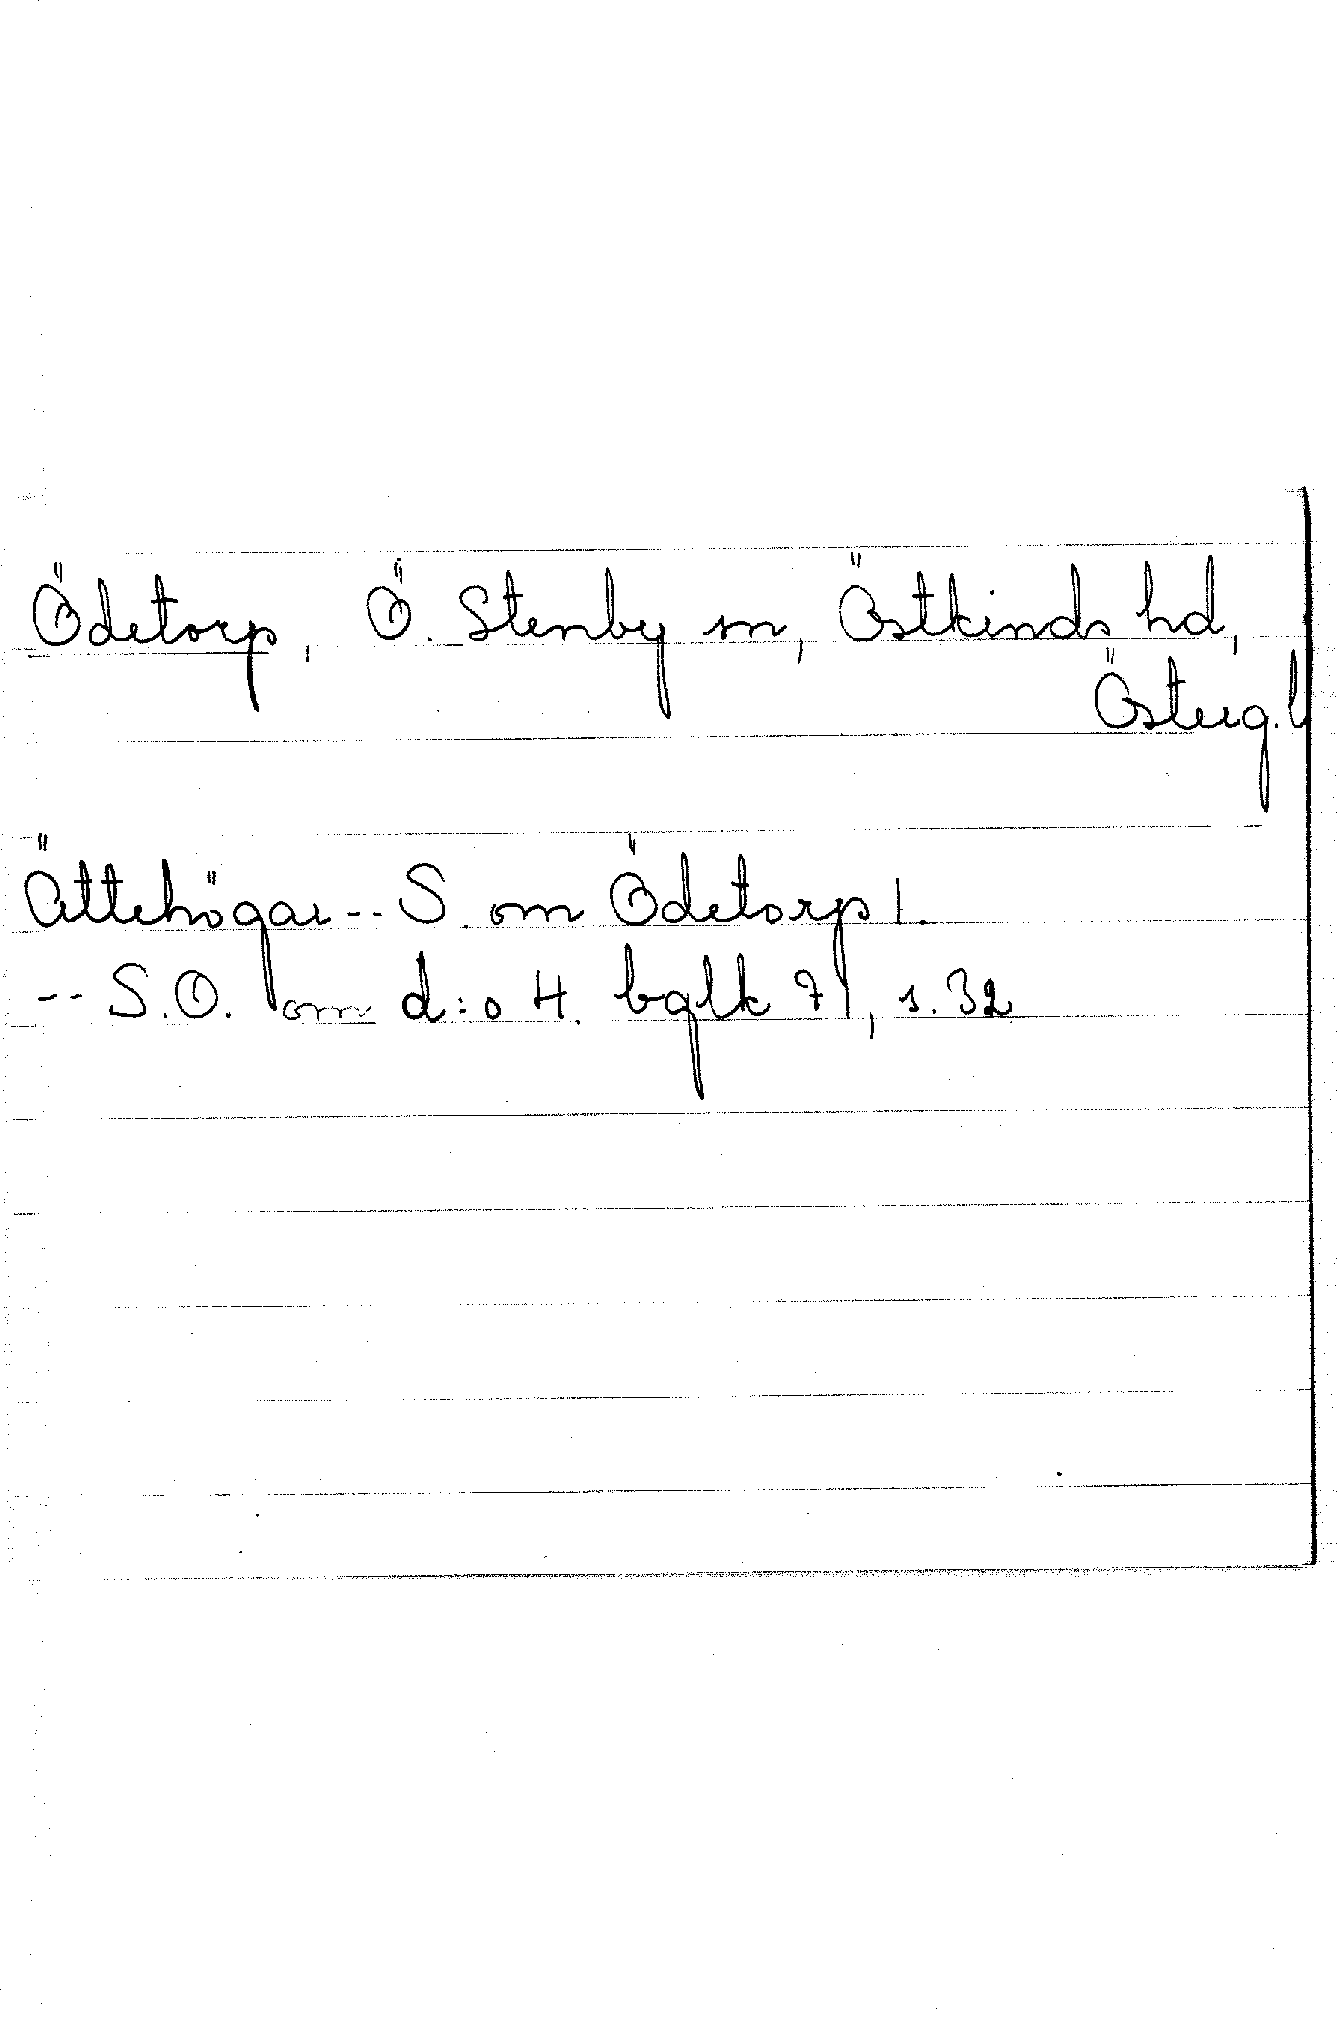 Ödetorp, Ö. Stenby sn, Östkinds hd,
Österg. l
Ättehögar -- S. om Ödetorp 1.
-- S.O. om d:o H. bglk 71, s. 32